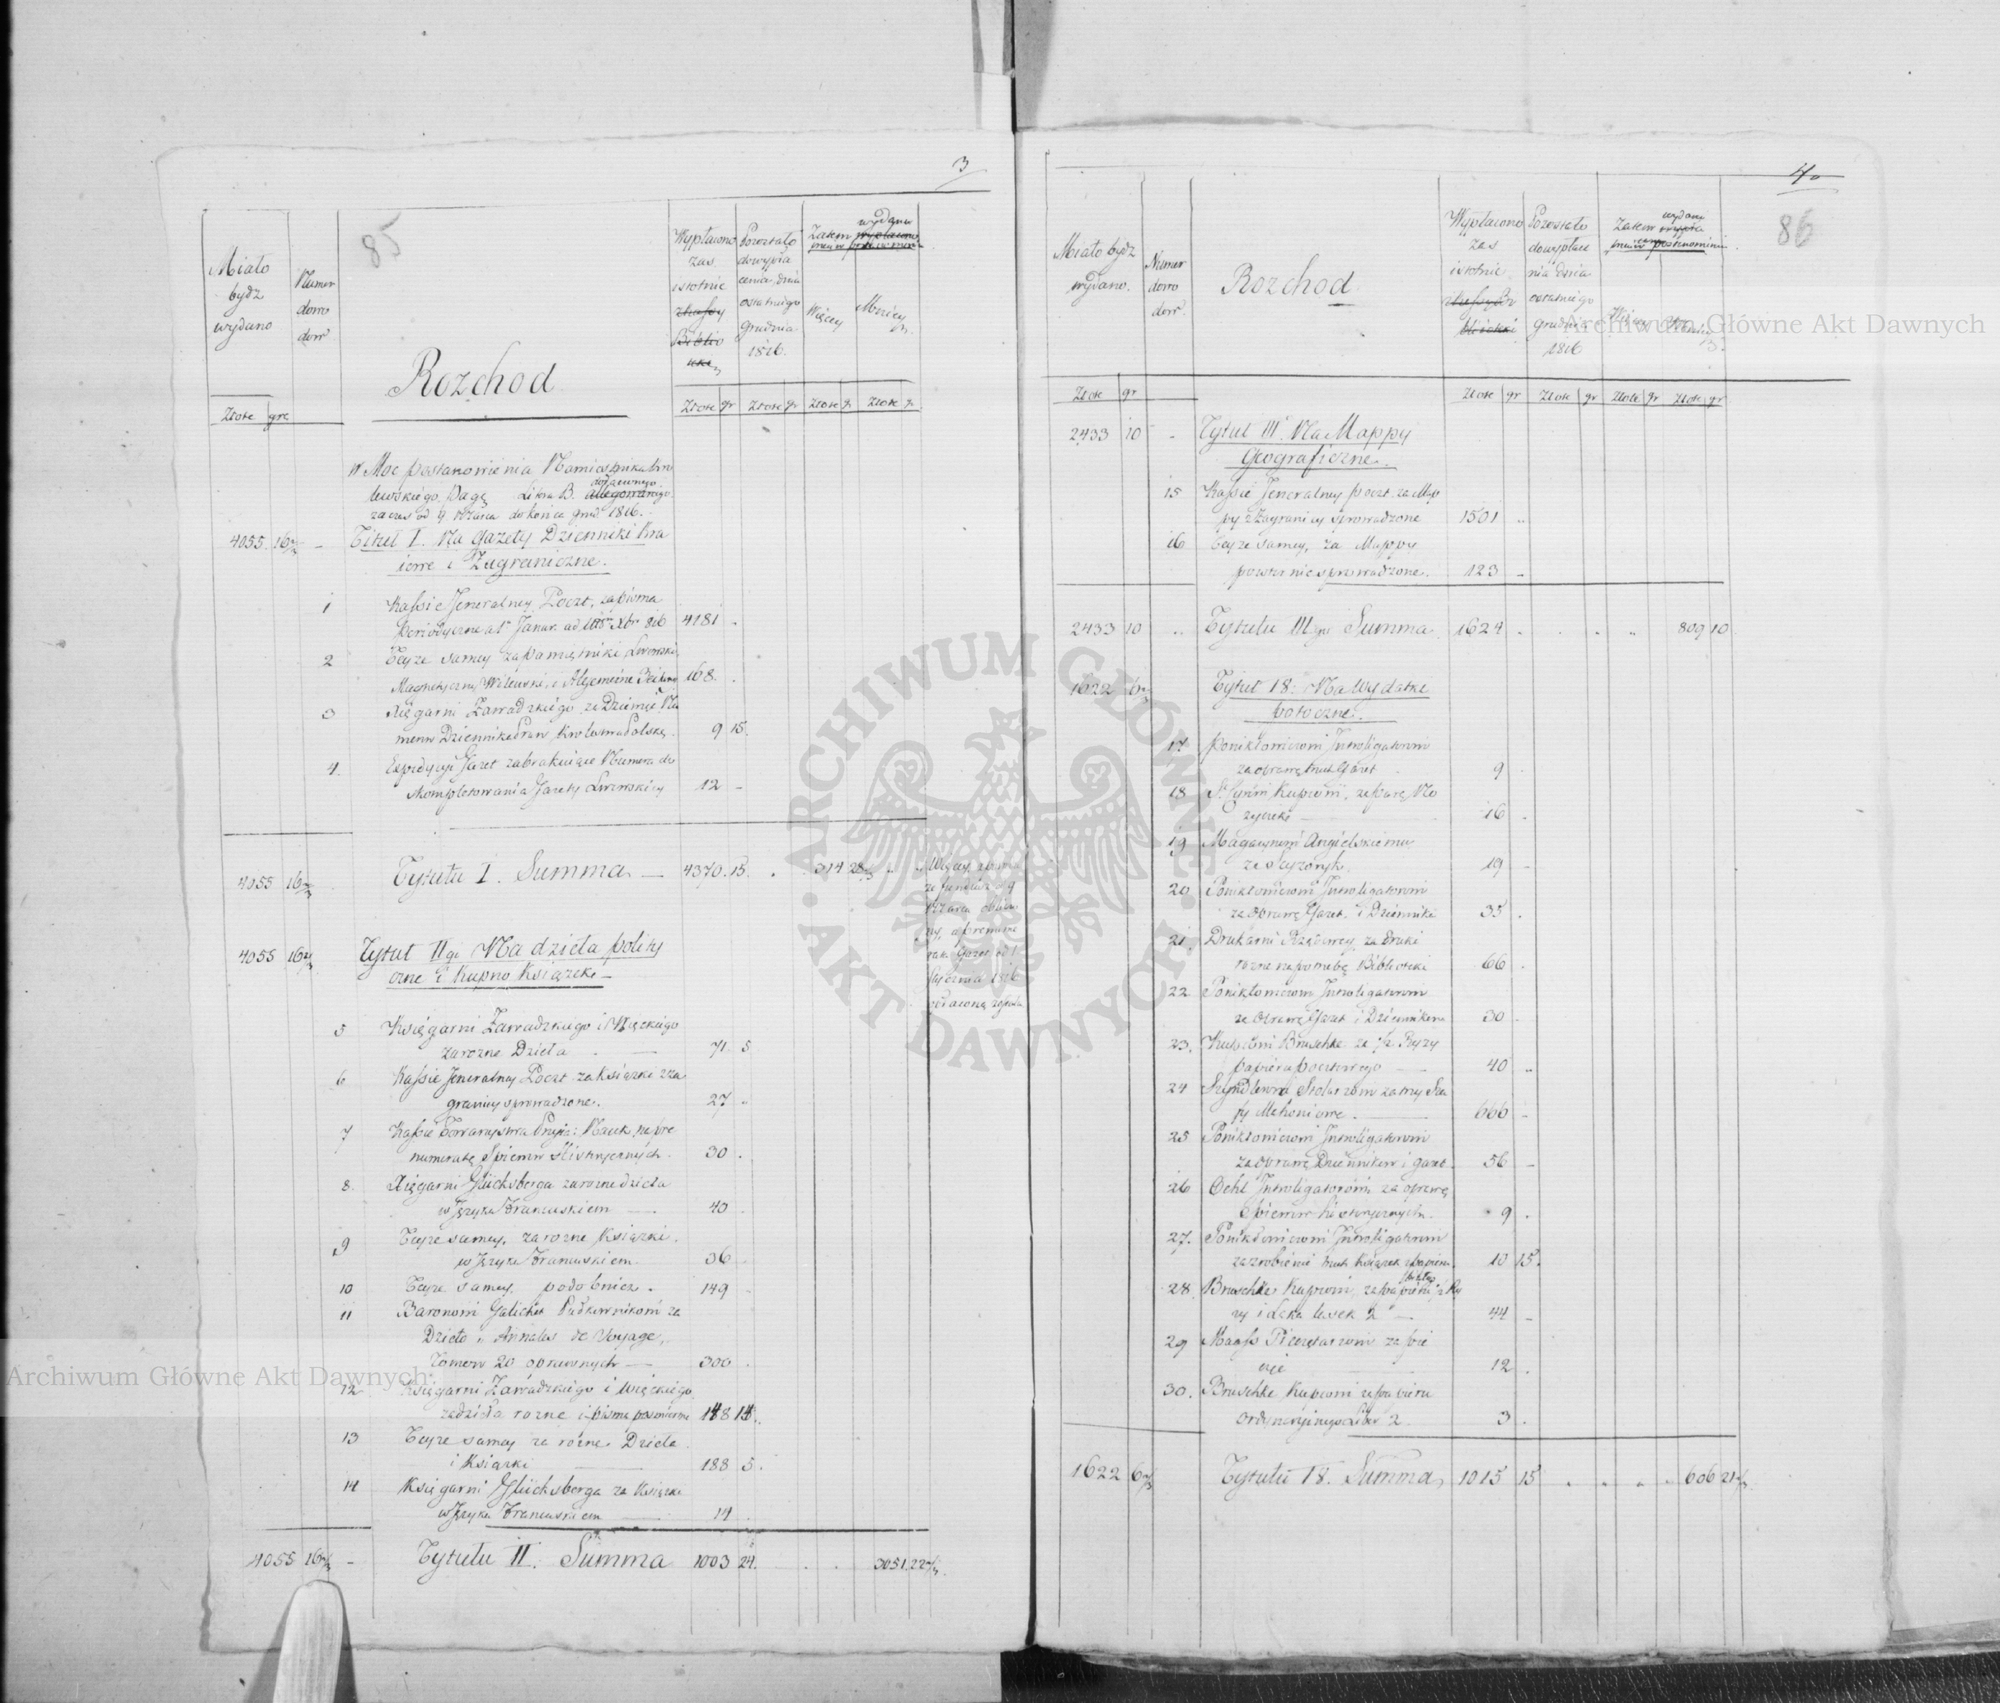 3
85
Miało
bydz
wydano
Numer
dowo
dow
Rozchod
Wypłacono
zas
istotnie
z kassy
Biblio
teki
Pozostało
do wypła
cenia dnia
ostatniego
Grudnia
1816.
Zatem wydano
Więcey
Mniey
Złote gr
Złote gr Złote gr Złote gr Złote gr
W Moc postanowienia Namiestnika Kró
lewskiego Litra B.
za czas od 9 Marca do końca grud 1816.
4055 16 2/3 Titul I. Na Gazety Dzienniki Kra
iowe i Zagraniczne.
1 Kassie Jeneralney Poczt, za pisma
Peryodyczne a 1 Januar. ad Xbr 816 4181
2 Teyze samey za Pamiętniki Lwowski,
Magnetyczny Wileński, i Algemeine Zeitung 168.
3 Xięgarni Zawadzkiego za Dziewięć Nu
merow Dziennika Praw Krolewstwa Polskg. 9 15.
4. Expedycyi Gazet za brakuiące Numera do
skompletowania Gazety Lwowskiey 12
4055 16 2/3 Tytułu I. Summa 4370. 15. 314 28 1/3
Więcey
ze fundusz od 9
Marca
a prenume
rata Gazet od 1
Stycznia 1816
opłaconą została
4055 16 2/3 Tytuł II go Na dzieła polity
czne i Kupno Książek
5 Księgarni Zawadzkiego i Więckiego
za rozne Dzieła 71 5
6 Kassie Jeneralney Poczt za książki z za
granicy sprowadzone. 27
7 Kassie Towarzystwa Przyia: Nauk, na pre
numeratę Spiewow Historycznych. 30
8. Xięgarni Glücksberga za rozne dzieła
w Języku Francuskiem 40
9 Teyze samey, za rozne Książki
w Języku Francuskiem 36
10 Teyze samey podobnież. 149
11 Baronowi Galichet Pułkownikowi za
Dzieło „Annales de Voyage„
Tomow 20 oprawnych 300
12 Księgarni Zawadzkiego i Więckiego
za dzieła rozne i pisma 148 14
13 Teyze samey za rożne Dzieła
i Książki 188 5.
14 Księgarni Glücksberga za Książki
w Języku Francuskiem 14
4055 16 2/3 Tytułu II. Summa 1003 24. 3051 22 2/3
4.
86
Miało bydz
wydano.
Numer
dowo
dow.
Rozchod
Wypłacono
zas
istotnie
z Kassy Bi
blioteki
Pozostało
do wypłace
nia dnia
ostatniego
Grudnia
1816
Zatem wydano
Więcey Mniey
Złote gr
Złote gr Złote gr Złote gr Złote gr
2433 10 Tytuł III. Na Mappy
Geograficzne.
15 Kassie Jeneralney poczt. za Map
py z Zagranicy sprowadzone 1501
16 Teyze samey, za Mappy
powtornie sprowadzone. 123
2433 10 Tytułu III go Summa 1624 809 10
1622 6 2/3 Tytuł IV: Na Wydatki
potoczne.
17 Ponikłowiczowi Introligatorowi
za oprawę Gazet 9
18 Kupcowi, za parę No
zyczek 16
19 Magazynowi Angielskiemu
za Scyzoryk. 19
20 Ponikłowiczowi Introligatorowi
za Oprawę Gazet, i Dzienniki 35
21 Drukarni Rządowey, za Druki
rozne na potrzebę Biblioteki 66
22 Ponikłowiczowi Introligatorowi
za Oprawę Gazet i Dziennikow 30
23. Kupcowi Bruschke za 1/2 Ryzy
papieru pocztowego 40
24 Stolarzowi za trzy Sza
fy Mahoniowe. 666
25 Ponikłowiczowi Introligatorowi
za Oprawę Dziennikow i gazet 56
26 Oehl Introligatorowi, za oprawę
Spiewow historycznych. 9
27. Ponikłowiczowi Introligatorowi
za zrobienie Książek z papieru 10 15.
28. Bruschke Kupcowi, za papieru 1/2 Ry
zy i Lak lasek 2 44
29 Pieczętarzowi za pie
częć 12
30. Bruschke Kupcowi za papieru
ordynaryinego Liber 2. 3
1622 6 2/3 Tytułu IV. Summa 1015 15 606 21 2/3
Archiwum Główne Akt Dawnych
Archiwum Główne Akt Dawnych
ARCHIWUM GŁÓWNE
AKT DAWNYCH